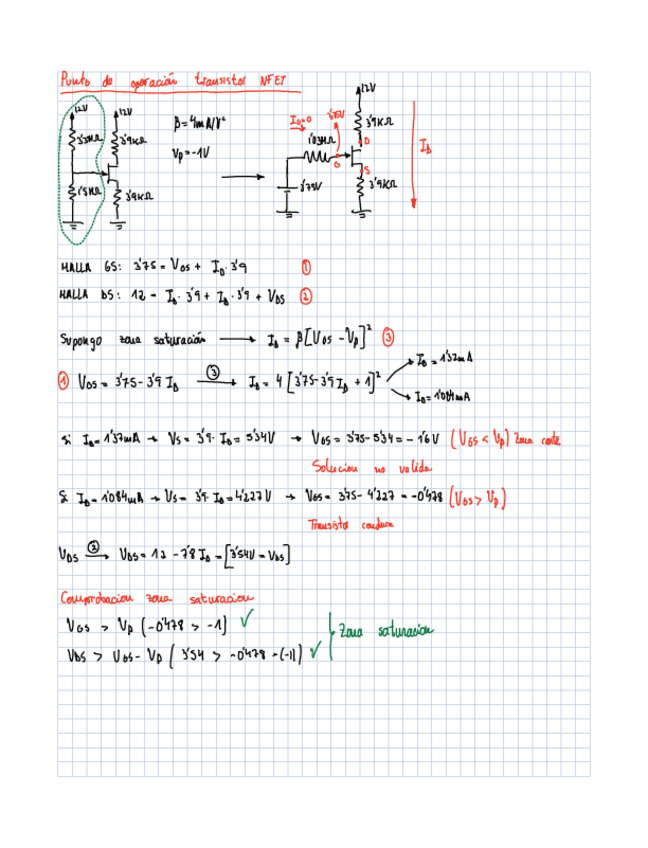 Punto de operación transistor NFET
12V
12V
3'3MΩ
3'9KΩ
1'5MΩ
3'9KΩ
β=4mA/V²
Vp=-1V
12V
3'9KΩ
I_G=0
3'75V
1'03MΩ
D
G
S
3'75V
3'9KΩ
I_D
MALLA GS: 3'75 = V_GS + I_D · 3'9 ①
MALLA DS: 12 = I_D · 3'9 + I_D · 3'9 + V_DS ②
Supongo zona saturación → I_D = β[V_GS - Vp]² ③
① V_GS = 3'75 - 3'9 I_D →③ I_D = 4 [3'75-3'9I_D + 1]²
I_D = 1'37mA
I_D = 1'084mA
Si I_D = 1'37mA → Vs = 3'9 · I_D = 5'34V → V_GS = 3'75 - 5'34 = -1'6V (V_GS < Vp) Zona corte
Solucion no valida
Si I_D = 1'084mA → Vs = 3'9 · I_D = 4'227V → V_GS = 3'75 - 4'227 = -0'478 (V_GS > Vp)
Transistor conduce
V_DS →② V_DS = 12 - 7'8 I_D = [3'54V = V_DS]
Comprobacion zona saturacion
V_GS > Vp [-0'478 > -1] ✓
V_DS > V_GS - Vp [3'54 > -0'478 - (-1)] ✓
Zona saturacion